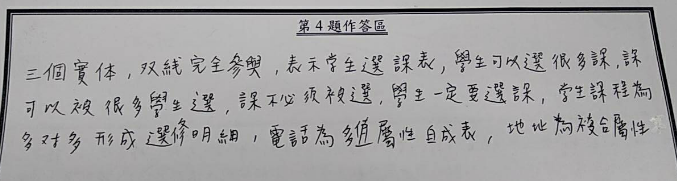 第4題作答區
三個實体，双线完全參與，表示学生選課表，學生可以選很多課，課
可以被很多學生選，課不必須被選，學生一定要選課，学生課程為
多对多形成選修明細，電話為多值屬性自成表，地址為複合屬性